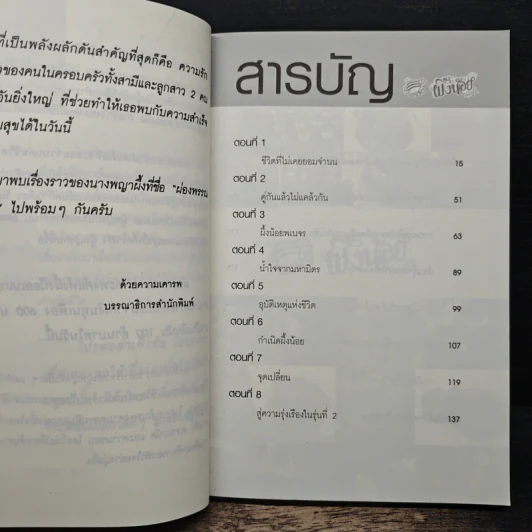 ที่เป็นพลังผลักดันสำคัญที่สุดก็คือ ความรัก
ของคนในครอบครัวทั้งสามีและลูกสาว 2 คน
อันยิ่งใหญ่ ที่ช่วยทำให้เธอพบกับความสำเร็จ
สุขได้ในวันนี้
มาพบเรื่องราวของนางพญาผึ้งที่ชื่อ "ผ่องพรรณ
ไปพร้อมๆ กันครับ
ด้วยความเคารพ
บรรณาธิการสำนักพิมพ์
สารบัญ
ผึ้งน้อย
ตอนที่ 1
ชีวิตที่ไม่เคยยอมจำนน 15
ตอนที่ 2
คู่กันแล้วไม่แคล้วกัน 51
ตอนที่ 3
ผึ้งน้อยพเนจร 63
ตอนที่ 4
น้ำใจจากมหามิตร 89
ตอนที่ 5
อุบัติเหตุแห่งชีวิต 99
ตอนที่ 6
กำเนิดผึ้งน้อย 107
ตอนที่ 7
จุดเปลี่ยน 119
ตอนที่ 8
สู่ความรุ่งเรืองในรุ่นที่ 2 137